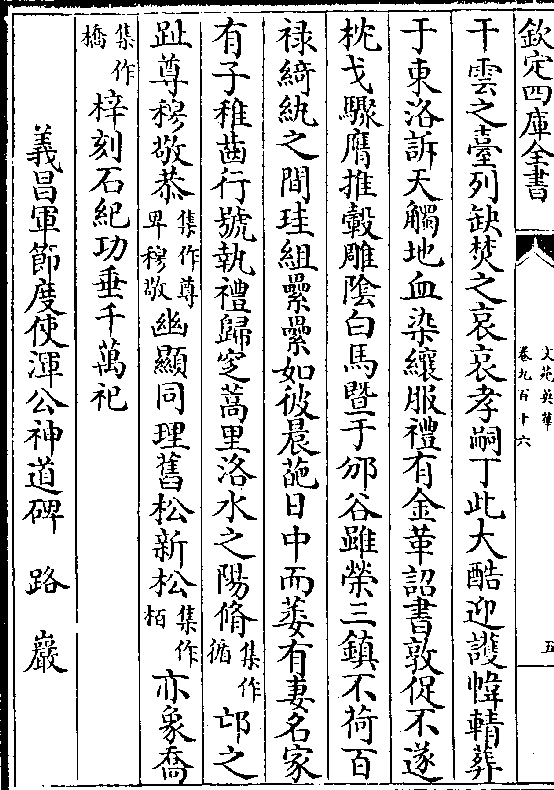 欽定四庫全書
文苑英華
卷九百十六
五
干雲之臺列缺焚之哀哀孝嗣丁此大酷迎護幃輤葬
于東洛訴天觸地血染纕服禮有金革詔書敦促不遂
枕戈驟膺推轂雕陰白馬暨于邠谷雖榮三鎮不荷百
禄綺紈之間珪組纍纍如彼晨葩日中而萎有妻名家
有子稚齒行號執禮歸定蒿里洛水之陽脩集作循邙之
趾尊穆敬恭集作尊卑穆敬幽顯同理舊松新松集作栢亦象喬
集作橋梓刻石紀功垂千萬祀
義昌軍節度使渾公神道碑 路巖